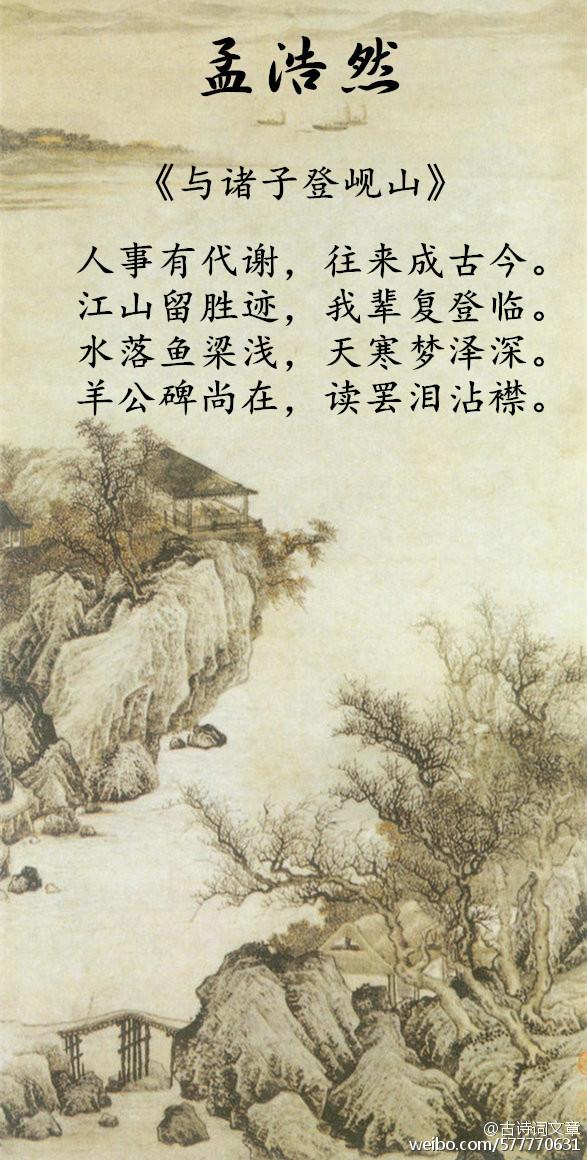 孟浩然
《与诸子登岘山》
人事有代谢，往来成古今。
江山留胜迹，我辈复登临。
水落鱼梁浅，天寒梦泽深。
羊公碑尚在，读罢泪沾襟。
@古诗词文章
weibo.com/577770631